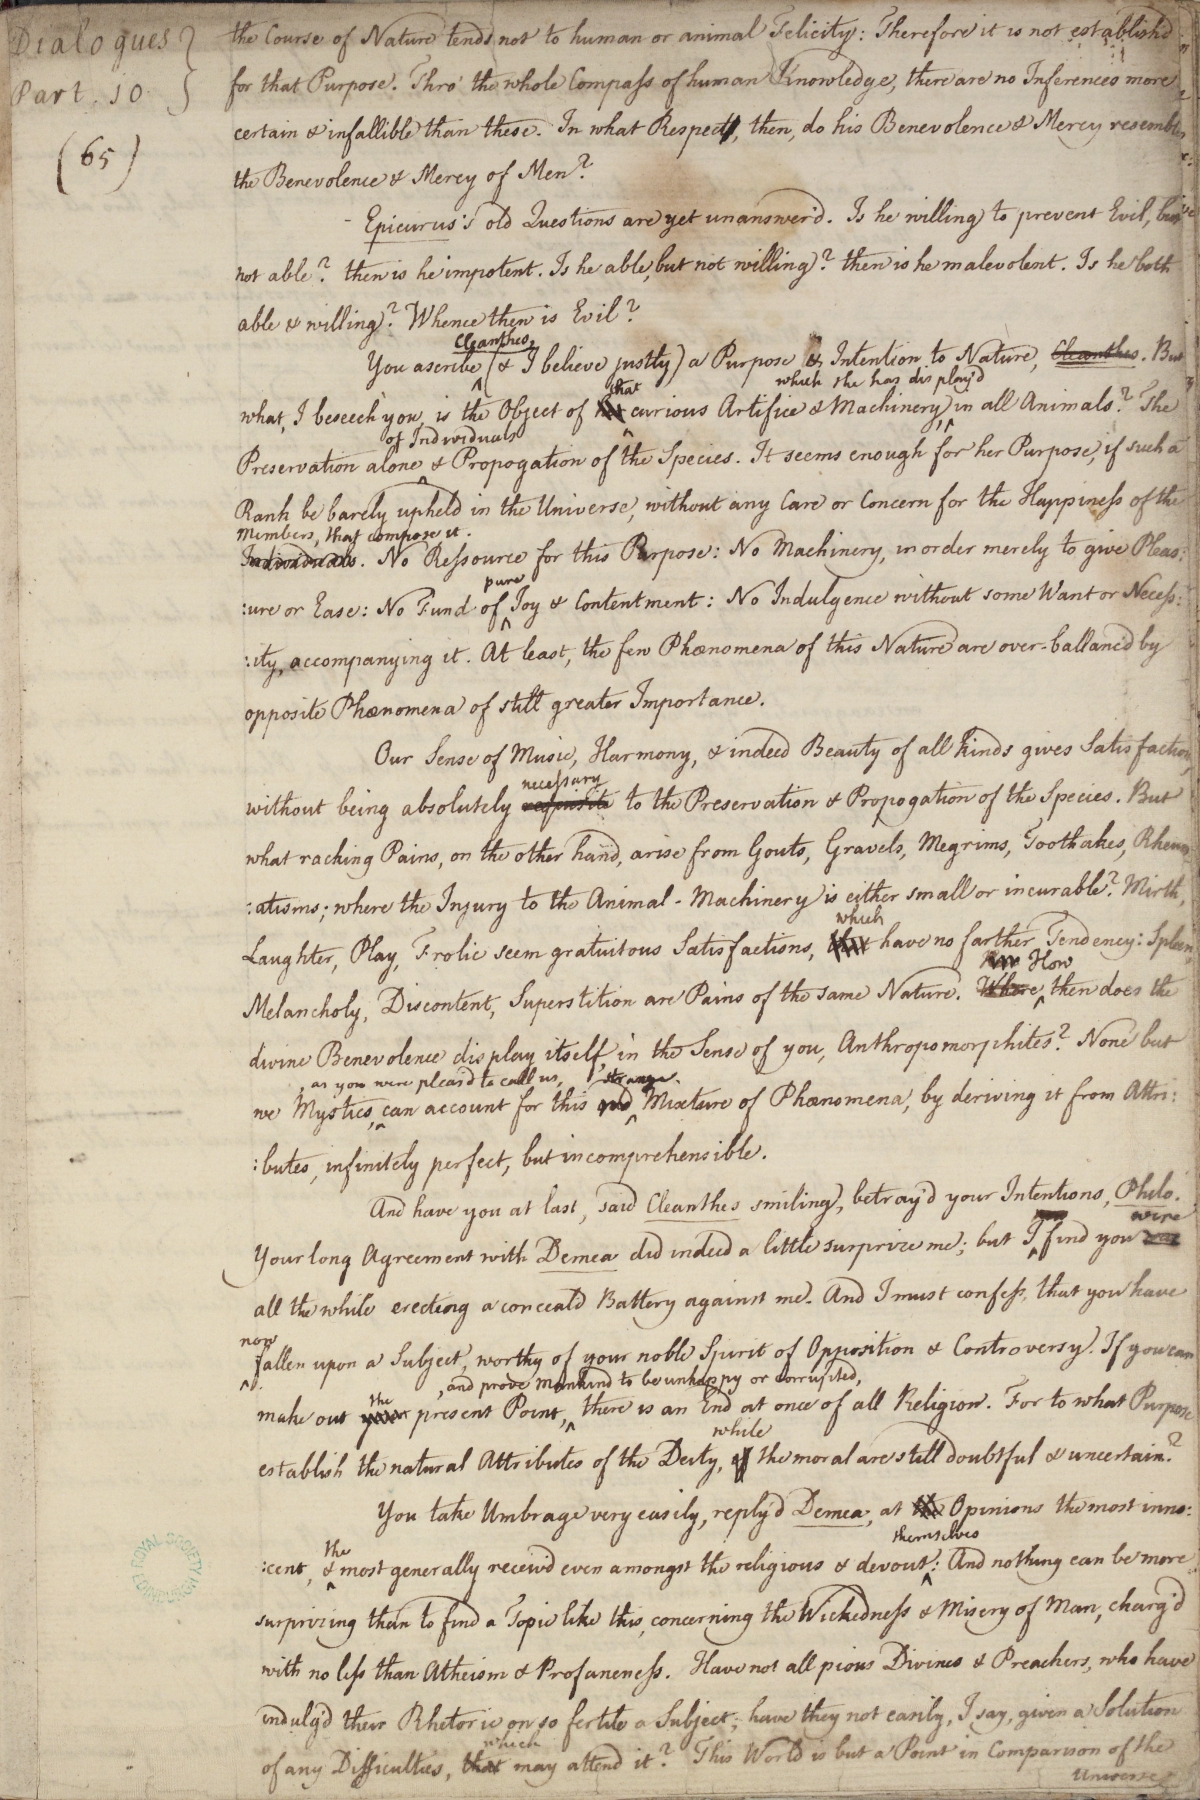 Dialogues
Part. 10
(65)
the Course of Nature tends not to human or animal Felicity: Therefore it is not establish'd
for that Purpose. Thro' the whole Compass of human Knowledge, there are no Inferences more
certain & infallible than these. In what Respect, then, do his Benevolence & Mercy resemble
the Benevolence & Mercy of Men?
Epicurus's old Questions are yet unanswer'd. Is he willing to prevent Evil, but
not able? then is he impotent. Is he able, but not willing? then is he malevolent. Is he both
able & willing? Whence then is Evil?
Cleanthes,
You ascribe (& I believe justly) a Purpose & Intention to Nature, Cleanthes. But
that which she has display'd
what, I beseech you, is the Object of curious Artifice & Machinery, in all Animals? The
of Individuals
Preservation alone & Propogation of the Species. It seems enough for her Purpose, if such a
Rank be barely upheld in the Universe, without any Care or Concern for the Happiness of the
Members, that compose it.
Individuals. No Ressource for this Purpose: No Machinery, in order merely to give Pleas:
pure
:ure or Ease: No Fund of Joy & Contentment: No Indulgence without some Want or Necess:
:ity, accompanying it. At least, the few Phænomena of this Nature are over-ballanc'd by
opposite Phænomena of still greater Importance.
Our Sense of Music, Harmony, & indeed Beauty of all kinds gives Satisfaction,
necessary
without being absolutely requisite to the Preservation & Propogation of the Species. But
what racking Pains, on the other hand, arise from Gouts, Gravels, Megrims, Toothakes, Rheum
:atisms; where the Injury to the Animal-Machinery is either small or incurable? Mirth,
which
Laughter, Play, Frolic seem gratuitous Satisfactions, that have no farther Tendency: Spleen,
How
Melancholy, Discontent, Superstition are Pains of the same Nature. Where, then does the
divine Benevolence display itself, in the Sense of you, Anthropomorphites? None but
, as you were pleas'd to call us, strange
we Mystics, can account for this Mixture of Phænomena, by deriving it from Attri:
:butes, infinitely perfect, but incomprehensible.
And have you at last, said Cleanthes smiling, betray'd your Intentions, Philo.
were
Your long Agreement with Demea did indeed a little surprize me; but I find you
all the while erecting a conceal'd Battery against me. And I must confess, that you have
now
fallen upon a Subject, worthy of your noble Spirit of Opposition & Controversy. If you can
the , and prove Mankind to be unhappy or corrupted,
make out your present Point, there is an End at once of all Religion. For to what Purpose
while
establish the natural Attributes of the Deity, if the moral are still doubtful & uncertain?
You take Umbrage very easily, reply'd Demea, at the Opinions the most inno:
the themselves
:cent, & most generally receiv'd even amongst the religious & devout: And nothing can be more
surprizing than to find a Topic like this, concerning the Wickedness & Misery of Man, charg'd
with no less than Atheism & Profaneness. Have not all pious Divines & Preachers, who have
indulg'd their Rhetoric on so fertile a Subject; have they not easily, I say, given a Solution
which
of any Difficulties, that may attend it? This World is but a Point in Comparison of the
Universe
ROYAL SOCIETY EDINBURGH